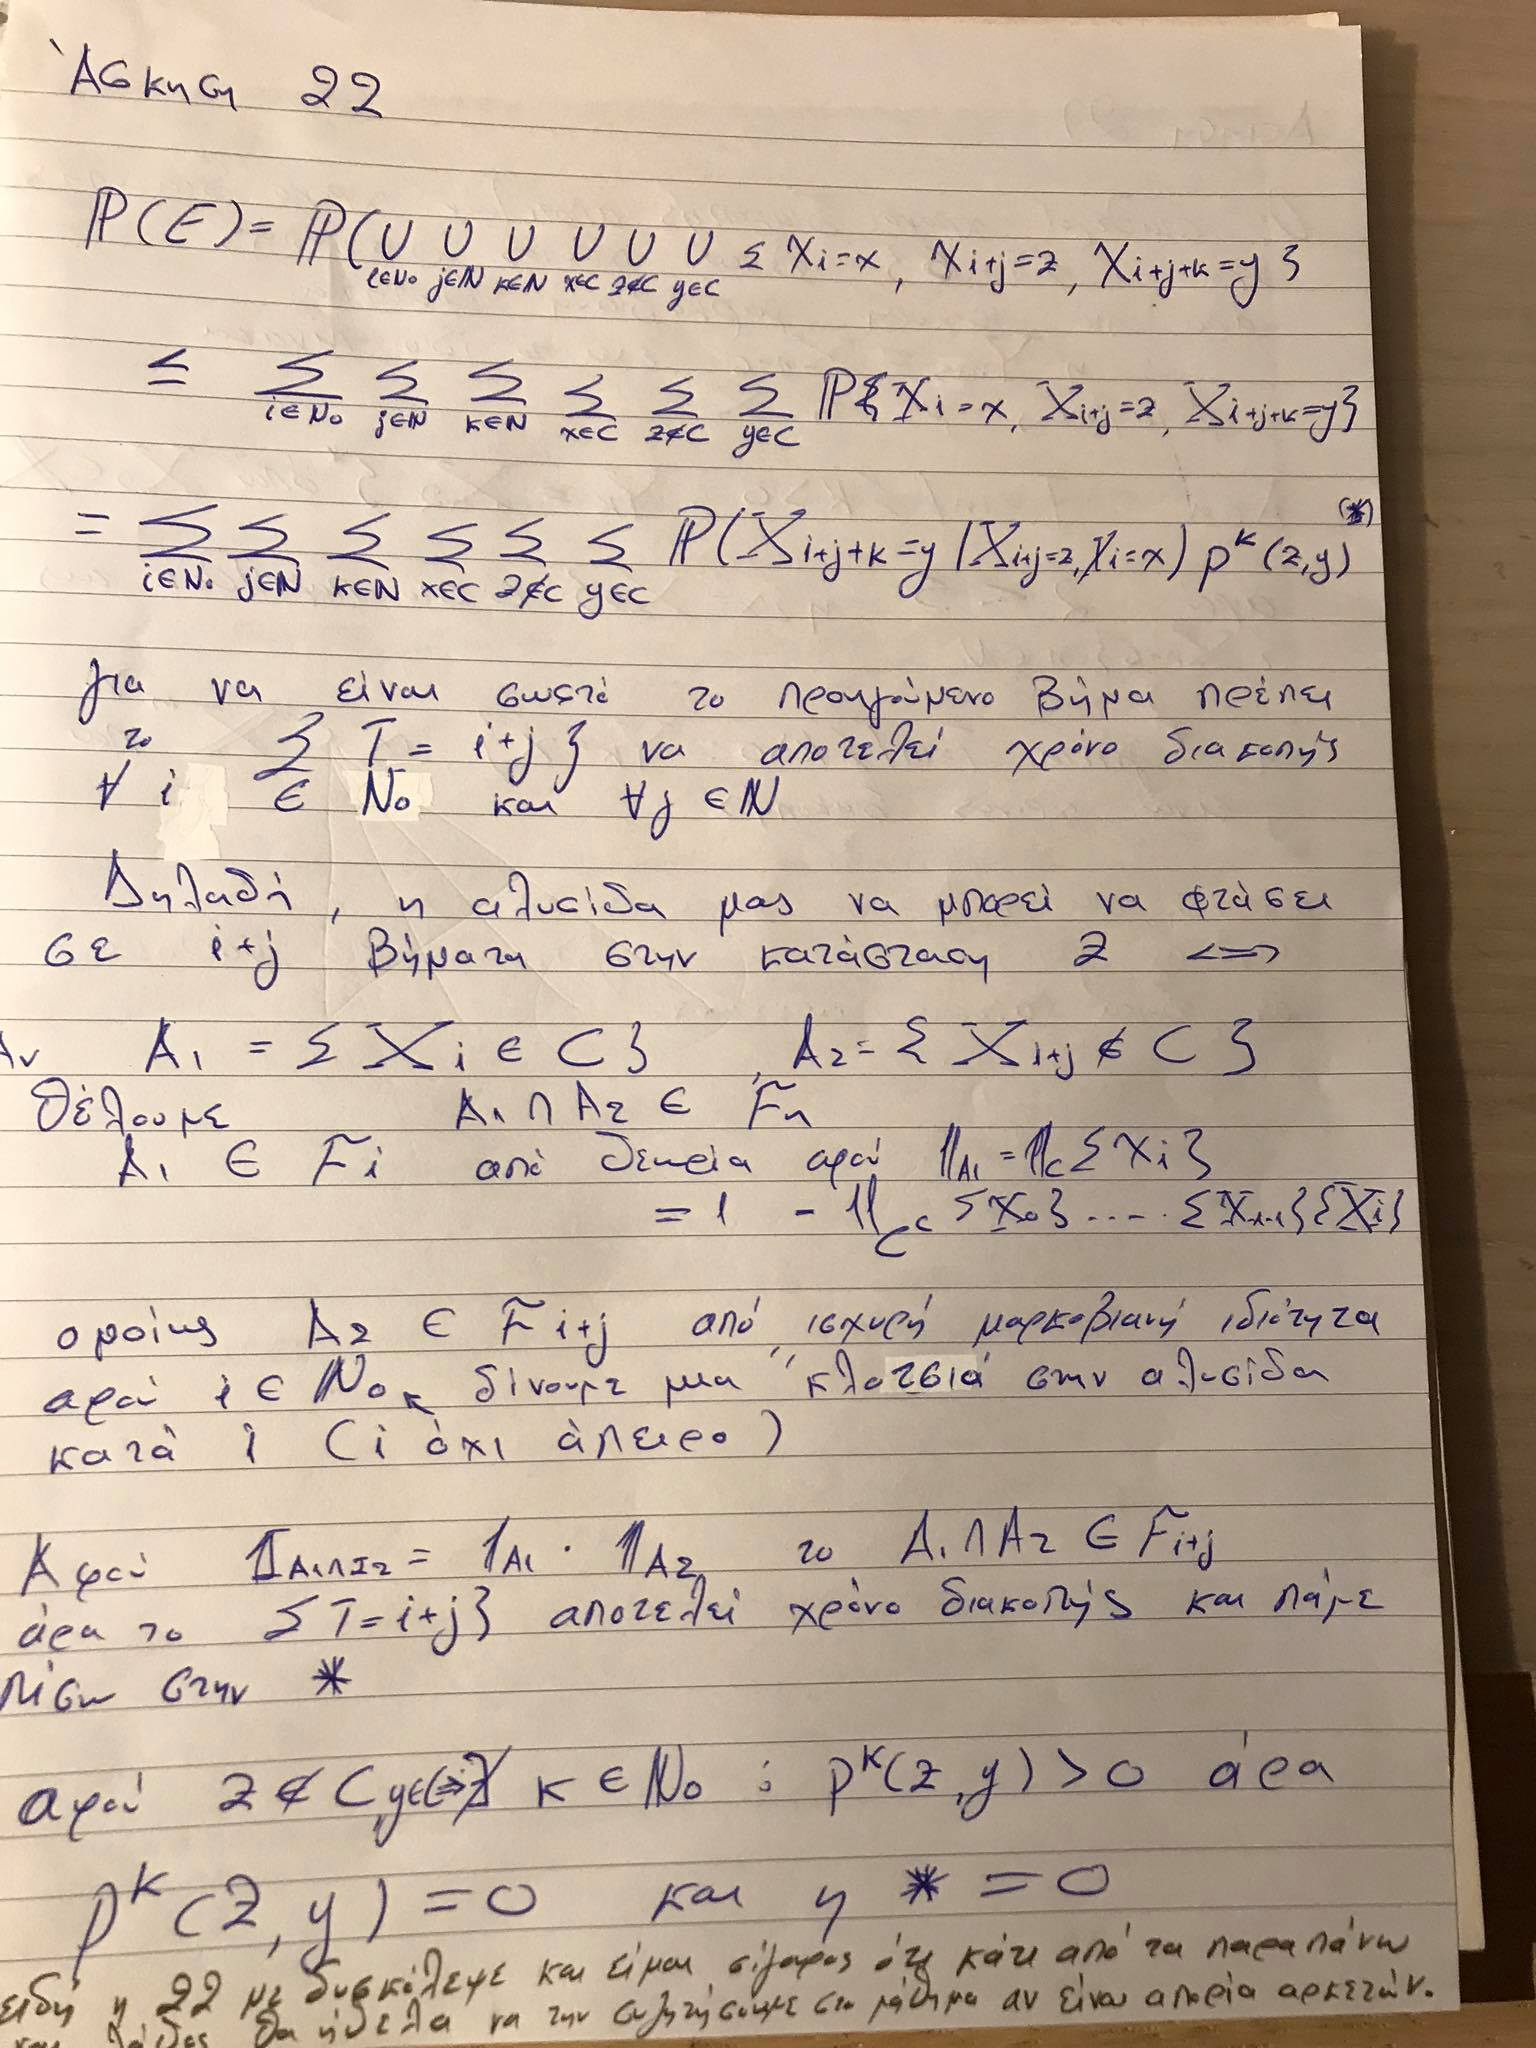 Άσκηση 22
ℙ(E) = ℙ(∪_{i∈ℕ₀} ∪_{j∈ℕ} ∪_{k∈ℕ} ∪_{x∈C} ∪_{z∉C} ∪_{y∈C} { X_i = x, X_{i+j} = z, X_{i+j+k} = y }
≤ Σ_{i∈ℕ₀} Σ_{j∈ℕ} Σ_{k∈ℕ} Σ_{x∈C} Σ_{z∉C} Σ_{y∈C} ℙ{ X_i = x, X_{i+j} = z, X_{i+j+k} = y }
= Σ_{i∈ℕ₀} Σ_{j∈ℕ} Σ_{k∈ℕ} Σ_{x∈C} Σ_{z∉C} Σ_{y∈C} ℙ( X_{i+j+k} = y | X_{i+j} = z, X_i = x ) p^k (z, y) (*)
για να είναι σωστό το προηγούμενο βήμα πρέπει
το { T = i+j } να αποτελεί χρόνο διακοπής
∀ i ∈ ℕ₀ και ∀ j ∈ ℕ
Δηλαδή, η αλυσίδα μας να μπορεί να φτάσει
σε i+j βήματα στην κατάσταση z <=>
Αν A₁ = { X_i ∈ C }, A₂ = { X_{i+j} ∉ C }
θέλουμε A₁ ∩ A₂ ∈ F_n
A₁ ∈ F_i από θεωρία αφού 𝟙_{A₁} = 𝟙_C { X_i }
= 1 - 𝟙_{C^c} { X₀ } .... { X_{i-1} } { X_i }
ομοίως A₂ ∈ F_{i+j} από ισχυρή μαρκοβιανή ιδιότητα
αφού i ∈ ℕ₀ δίνουμε μια "κλοτσιά στην αλυσίδα
κατά i (i όχι άπειρο)
Αφού 𝟙_{A₁∩Σ₂} = 𝟙_{A₁} · 𝟙_{A₂} το A₁ ∩ A₂ ∈ F_{i+j}
άρα το { T = i+j } αποτελεί χρόνο διακοπής και πάμε
πίσω στην *
αφού z ∉ C, y∈C => ∄ κ ∈ ℕ₀ : p^k (z, y) > 0 άρα
p^k (z, y) = 0 και η * = 0
η 22 με δυσκόλεψε και είμαι σίγουρος ότι κάτι από τα παραπάνω
λάθος θα ήθελα να την συζητήσουμε στο μάθημα αν είναι απορία αρκετών.